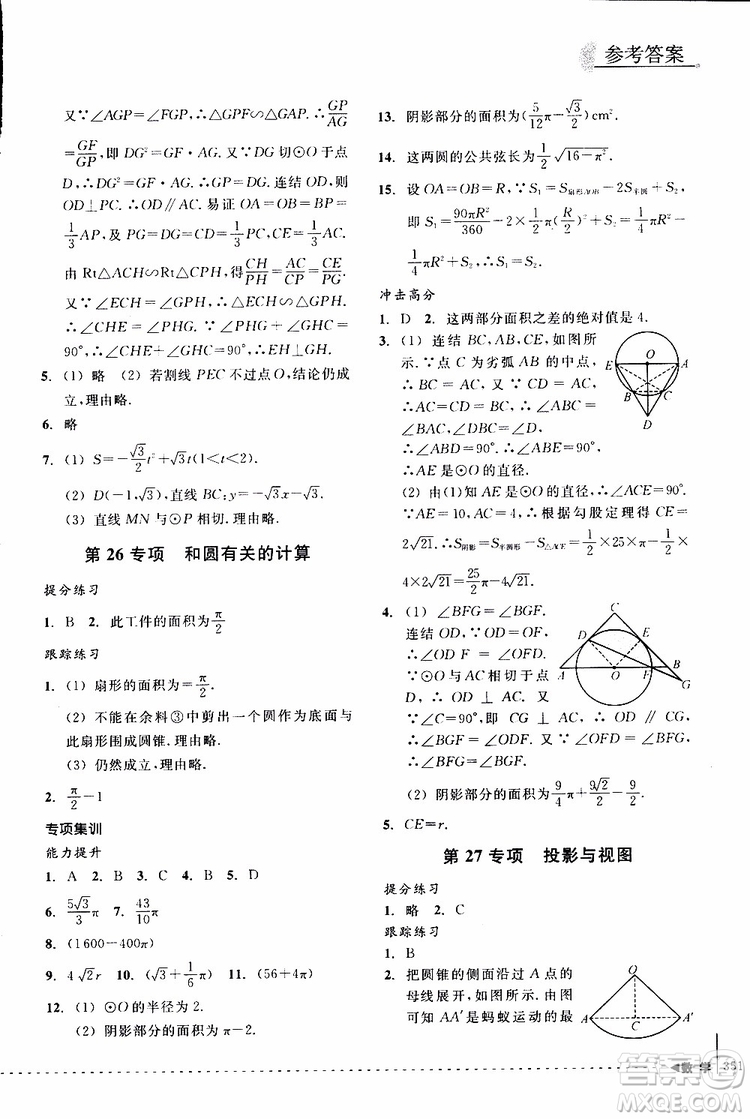 参考答案
又∵∠AGP=∠FGP,∴△GPF∽△GAP. ∴GP/AG=
GF/GP,即DG²=GF·AG. 又∵GD切⊙O于点
D,∴DG²=GF·AG,∴DG=PG. 连结OD,则
OD⊥PC. ∴OD∥PA. 易证OA=OB=
1/3AP,及PG=DG=CD,∴CE=CH=
1/3AC.
由Rt△ACH∽Rt△CPH,得CH/PH=AC/CP=CE/PG.
又∵∠ECH=∠GPH,∴△ECH∽△GPH.
∴∠CHE=∠PHG. ∵∠PHG+∠GHC=
90°,∴∠CHE+∠GHC=90°,即EH⊥GH.
5. (1) 略 (2) 若割线PEC不过点O,结论仍成
立,理由略.
6. 略
7. (1) S=-√3/2t²+√3t(1<t<2).
(2) D(-1,√3),直线BC:y=-√3x-√3.
(3) 直线MN与⊙P相切. 理由略.
第26专项 和圆有关的计算
提分练习
1. B 2. 此工件的面积为π/2
跟踪练习
1. (1) 扇形的面积为=π/2.
(2) 不能在余料③中剪出一个圆作为底面与
此扇形围成圆锥. 理由略.
(3) 仍然成立,理由略.
2. π/2-1
专项集训
能力提升
1. A 2. B 3. B 4. D 5. B
6. 5√3/3π 7. 43/10π
8. (1600-400π)
9. 4√2r 10. (√3+1/6π) 11. (56+4π)
12. (1) ⊙O的半径为2.
(2) 阴影部分的面积为π-2.
13. 阴影部分的面积为(5/12π-√3/2)cm².
14. 这两圆的公共弦长为1/2√(16-π²).
15. 设OA=OB=R,∵S₁=S扇形AOB-2S半圆+S₂
即S₁=90πR²/360-2×1/2π(R/2)²+S₂,∴S₁=
1/4πR²-1/4πR²+S₂,∴S₁=S₂.
冲击高分
1. D 2. 这两部分面积之差的绝对值是4.
3. (1) 连结BC,AB,如图所
示.∵点C为劣弧AB的中点,
∴BC=AC,又∵DC=AC,
∴AC=CD=BC,∴∠ABC=
∠BAC,∠DBC=∠D=
∴∠ABD=90°,∴∠ABE=90°.
∴AE是⊙O的直径.
(2) 由(1)知AE是⊙O的直径,∴∠ACE=90°.
∵AE=10,AC=4,∴根据勾股定理得CE=
2√21,∴S阴影=S半圆形-S△ACE=1/2×25π-1/2×
4×2√21=25/2π-4√21.
4. (1) ∠BFG=∠BGF.
连结OD,∵OD=OF,
∴∠ODF=∠OFD.
∵⊙O与AC相切于点
D,∴OD⊥AC. 又
∵∠C=90°,即CG⊥AC,∴OD∥CG.
∴∠BGF=∠ODF. 又∵∠OFD=∠BFG,
∴∠BFG=∠BGF.
(2) 阴影部分的面积为9/4π+9√2/2-9/2.
5. CE=r.
E O A
B C
D
C
D E
A O F B
G
第27专项 投影与视图
提分练习
1. 略 2. C
跟踪练习
1. B
2. 把圆锥的侧面沿过A点的
母线展开,如图所示,由图
可知AA′是蚂蚁运动的最
O
A C A′
数学 351
答案圈
MXQE.COM